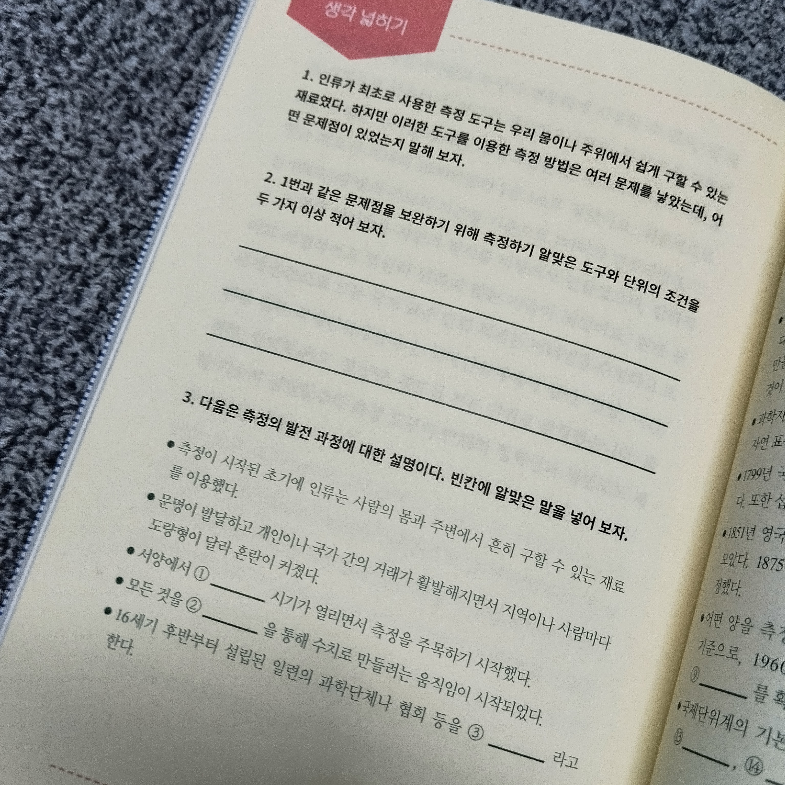 생각 넓히기
1. 인류가 최초로 사용한 측정 도구는 우리 몸이나 주위에서 쉽게 구할 수 있는
재료였다. 하지만 이러한 도구를 이용한 측정 방법은 여러 문제를 낳았는데, 어
떤 문제점이 있었는지 말해 보자.
2. 1번과 같은 문제점을 보완하기 위해 측정하기 알맞은 도구와 단위의 조건을
두 가지 이상 적어 보자.
3. 다음은 측정의 발전 과정에 대한 설명이다. 빈칸에 알맞은 말을 넣어 보자.
• 측정이 시작된 초기에 인류는 사람의 몸과 주변에서 흔히 구할 수 있는 재료
를 이용했다.
• 문명이 발달하고 개인이나 국가 간의 거래가 활발해지면서 지역이나 사람마다
도량형이 달라 혼란이 커졌다.
• 서양에서 ① ______ 시기가 열리면서 측정을 주목하기 시작했다.
• 모든 것을 ② ______ 을 통해 수치로 만들려는 움직임이 시작되었다.
• 16세기 후반부터 설립된 일련의 과학단체나 협회 등을 ③ ______ 라고
한다.
자연 표
• 1799년
다. 또한 십
• 1851년 영국
모았다. 1875
정했다.
• 어떤 양을 측정
기준으로, 1960
______ 를 확
• 국제단위계의 기본
⑬ ______ , ⑭